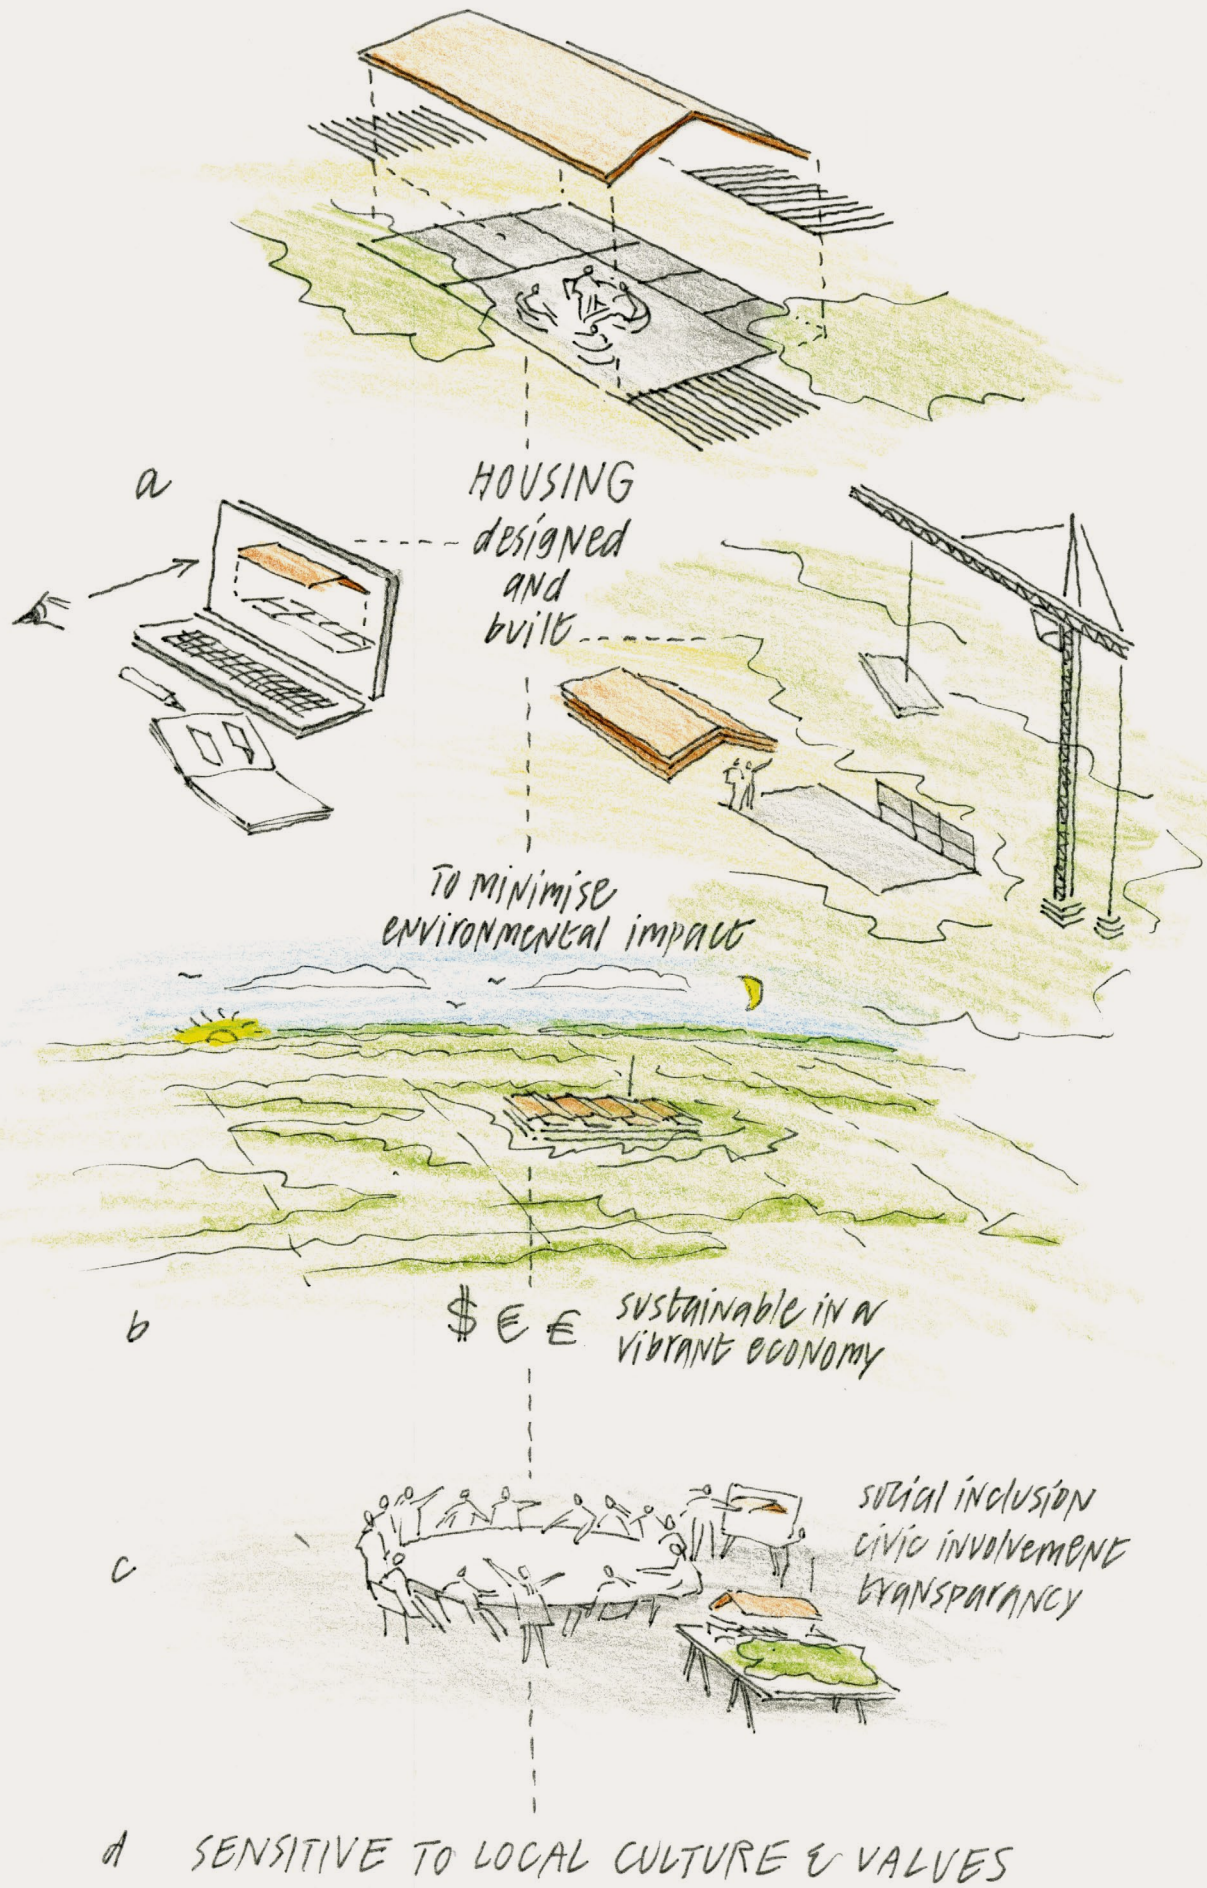 a
HOUSING
designed
and
built
To minimise
environmental impact
b
$ € €
sustainable in a
vibrant economy
c
social inclusion
civic involvement
transparancy
d SENSITIVE TO LOCAL CULTURE & VALUES